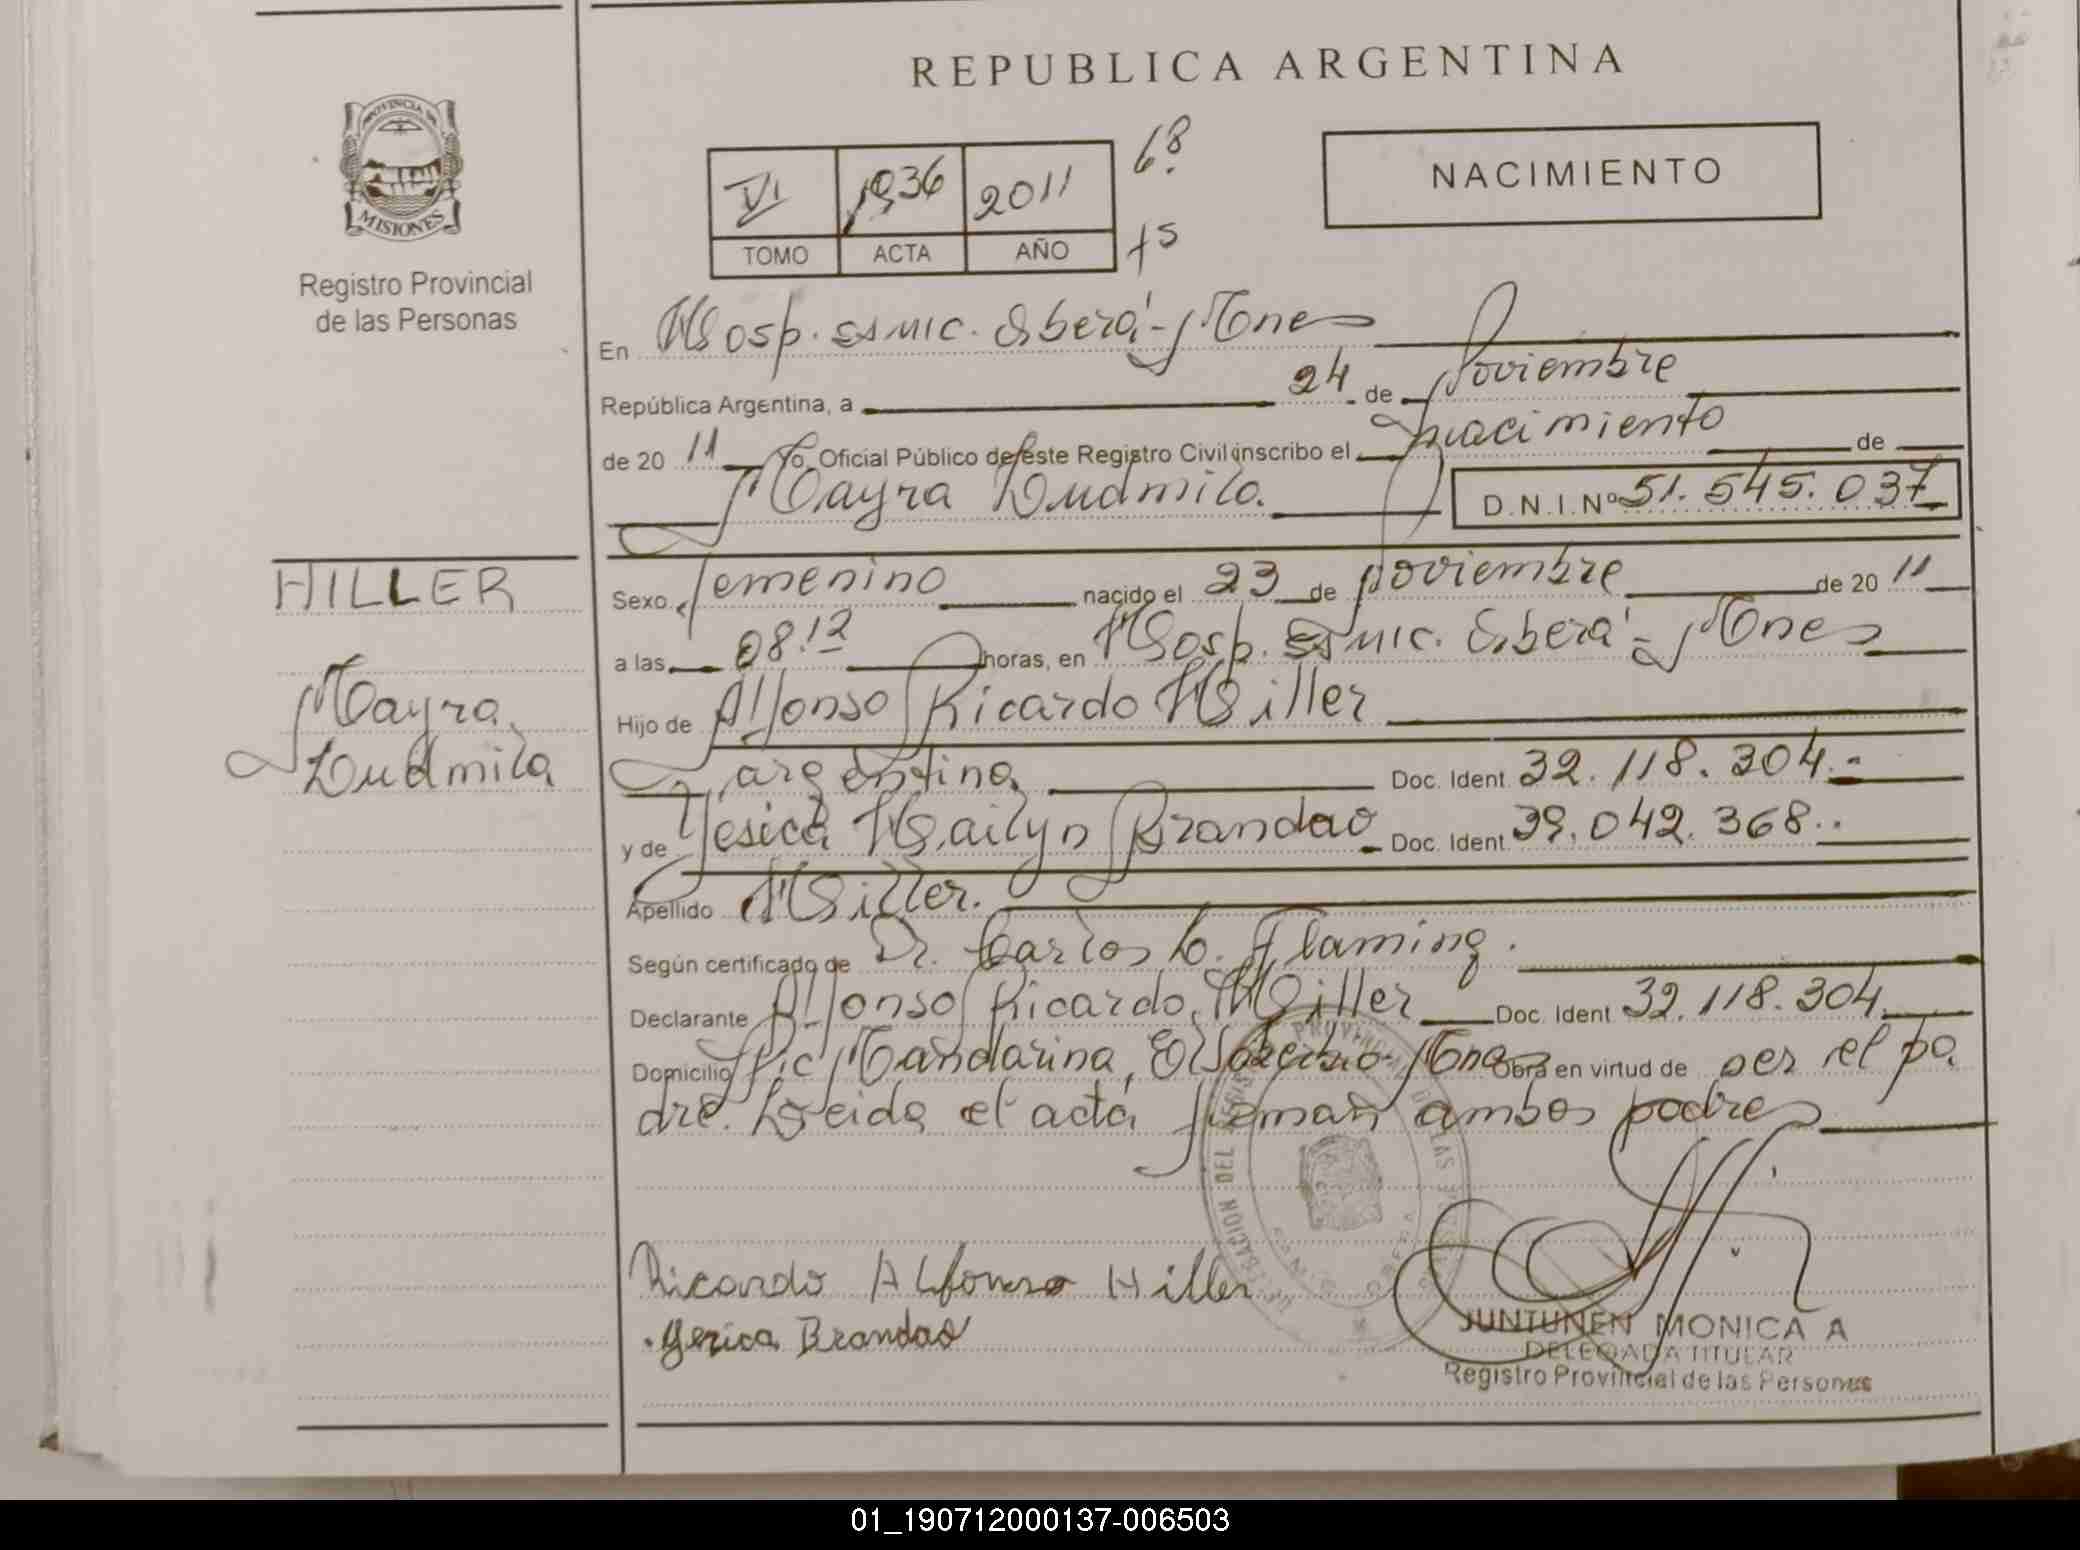 REPUBLICA ARGENTINA
PROVINCIA DE
MISIONES
Registro Provincial
de las Personas
VI 1936 2011
TOMO ACTA AÑO
68
fs
NACIMIENTO
En Hosp. SAMIC. Oberá - Mnes
República Argentina, a 24 de Noviembre
de 20 11 Yo, Oficial Público de este Registro Civil inscribo el nacimiento de
Mayra Ludmila D.N.I.Nº 51.545.037
HILLER
Mayra
Ludmila
Sexo femenino nacido el 23 de noviembre de 20 11
a las 08.12 horas, en Hosp. SAMIC. Oberá - Mnes
Hijo de Alfonso Ricardo Hiller
argentina Doc. Ident. 32.118.304.-
y de Yesica Hailyn Brandao Doc. Ident. 39.042.368.-
Apellido Hiller.
Según certificado de Dr. Carlos L. Flaming.
Declarante Alfonso Ricardo Hiller Doc. Ident 32.118.304
Domicilio Pic Mandarina, El Mnes Obra en virtud de ser el pa
dre. Leida el acta firman ambos padres
Ricardo Alfonso Hiller
Yesica Brandao
JUNTUNEN MONICA A
DELEGADA TITULAR
Registro Provincial de las Personas
01_190712000137-006503